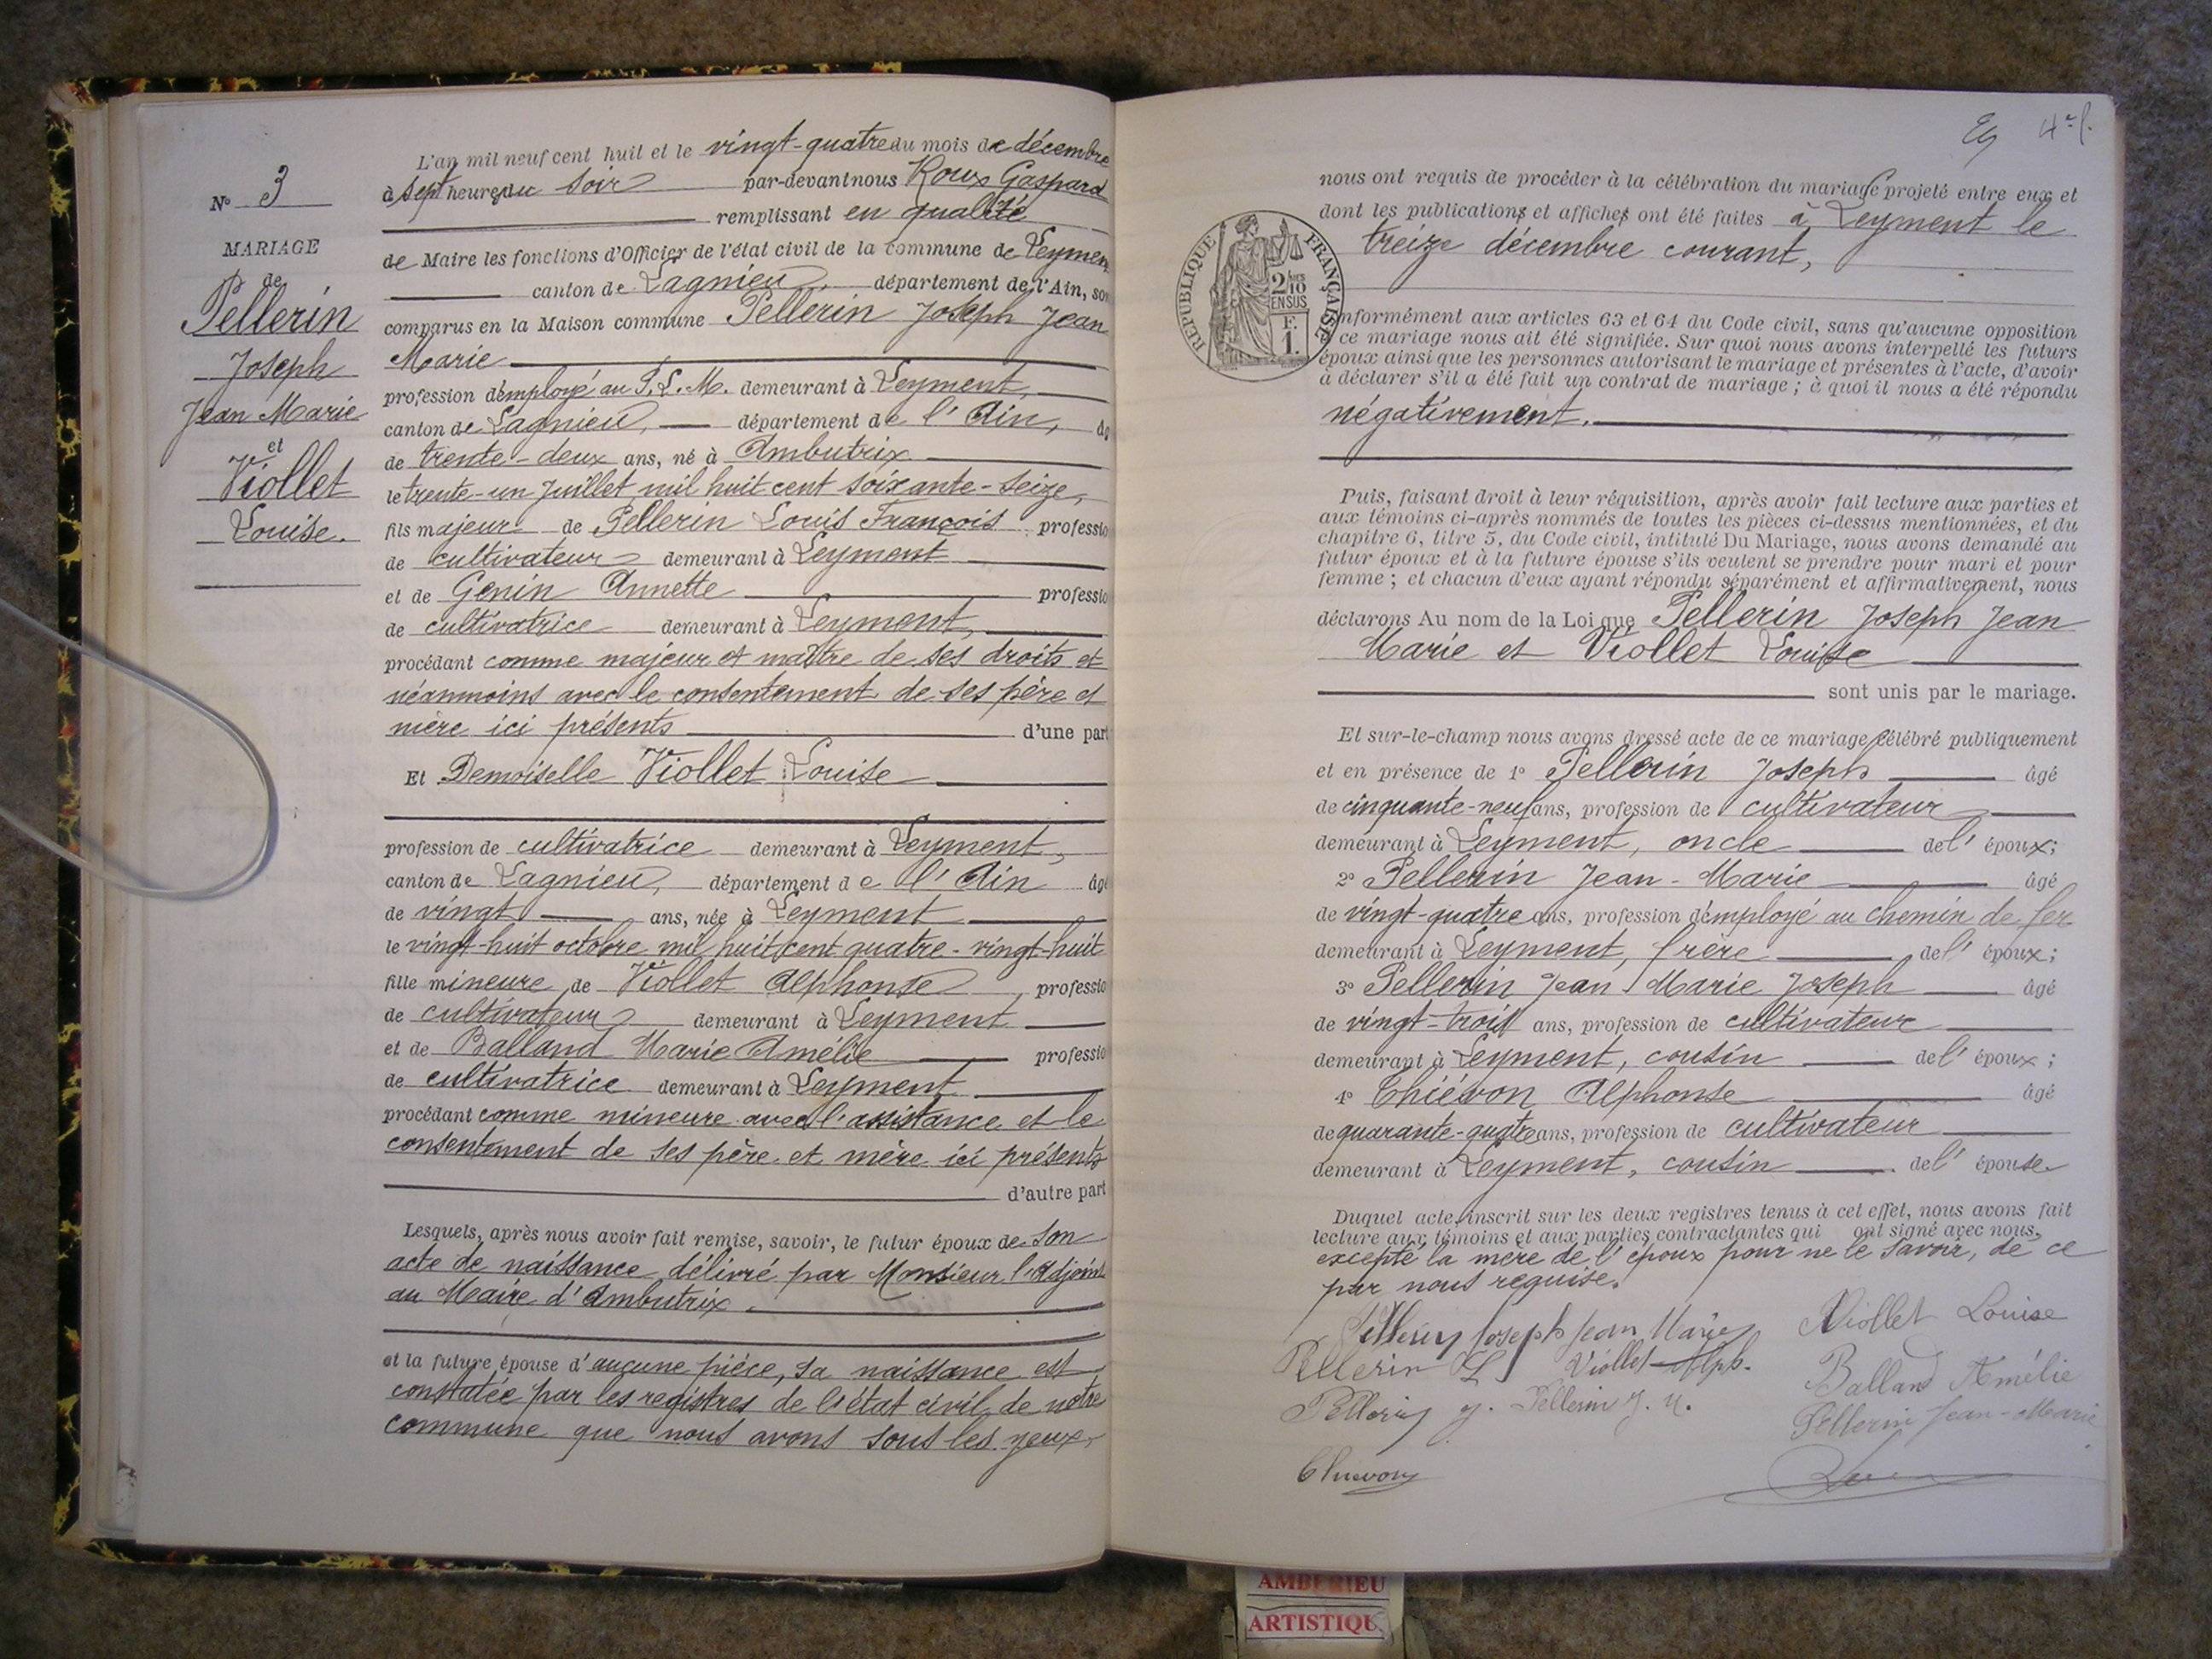 N° 3
MARIAGE
de
Pellerin
Joseph
Jean Marie
et
Viollet
Louise.
L'an mil neuf cent huit et le vingt-quatre du mois de décembre
à sept heures du soir par-devant nous Roux Gaspard
remplissant en qualité
de Maire les fonctions d'Officier de l'état civil de la commune de Leymen
canton de Lagnieu, département de l'Ain, son
comparus en la Maison commune Pellerin Joseph Jean
Marie
profession d'employé au P.L.M. demeurant à Leyment,
canton de Lagnieu, département de l'Ain, âg
de trente-deux ans, né à Ambutrix
le trente-un juillet mil huit cent soixante-seize,
fils majeur de Pellerin Louis François professio
de cultivateur demeurant à Leyment
et de Genin Annette professio
de cultivatrice demeurant à Leyment,
procédant comme majeur et maître de ses droits et
néanmoins avec le consentement de ses père et
mère ici présents d'une part
Et Demoiselle Viollet Louise
profession de cultivatrice demeurant à Leyment,
canton de Lagnieu, département de l'Ain âgé
de vingt ans, née à Leyment
le vingt-huit octobre mil huit cent quatre-vingt-huit
fille mineure de Viollet Alphonse, professio
de cultivateur demeurant à Leyment
et de Balland Marie Amélie professio
de cultivatrice demeurant à Leyment
procédant comme mineure avec l'assistance et le
consentement de ses père et mère ici présents
d'autre part
Lesquels, après nous avoir fait remise, savoir, le futur époux de son
acte de naissance délivré par Monsieur l'Adjoint
au Maire d'Ambutrix.
et la future épouse d'aucune pièce, sa naissance est
constatée par les registres de l'état civil de notre
commune que nous avons sous les yeux,
nous ont requis de procéder à la célébration du mariage projeté entre eux et
dont les publications et affiches ont été faites à Leyment le
treize décembre courant,
REPUBLIQUE FRANÇAISE
2/10
EN SUS
F.
1.
nformément aux articles 63 et 64 du Code civil, sans qu'aucune opposition
ce mariage nous ait été signifiée. Sur quoi nous avons interpellé les futurs
époux ainsi que les personnes autorisant le mariage et présentes à l'acte, d'avoir
à déclarer s'il a été fait un contrat de mariage ; à quoi il nous a été répondu
négativement.
Puis, faisant droit à leur réquisition, après avoir fait lecture aux parties et
aux témoins ci-après nommés de toutes les pièces ci-dessus mentionnées, et du
chapitre 6, titre 5, du Code civil, intitulé Du Mariage, nous avons demandé au
futur époux et à la future épouse s'ils veulent se prendre pour mari et pour
femme ; et chacun d'eux ayant répondu séparément et affirmativement, nous
déclarons Au nom de la Loi que Pellerin Joseph Jean
Marie et Viollet Louise
sont unis par le mariage.
Et sur-le-champ nous avons dressé acte de ce mariage célébré publiquement
et en présence de 1° Pellerin Joseph âgé
de cinquante-neuf ans, profession de cultivateur
demeurant à Leyment, oncle de l'époux;
2° Pellerin Jean-Marie âgé
de vingt-quatre ans, profession d'employé au chemin de fer
demeurant à Leyment, frère de l'époux;
3° Pellerin Jean Marie Joseph âgé
de vingt-trois ans, profession de cultivateur
demeurant à Leyment, cousin de l'époux;
4° Chiévon Alphonse âgé
de quarante-quatre ans, profession de cultivateur
demeurant à Leyment, cousin de l'épouse
Duquel acte, inscrit sur les deux registres tenus à cet effet, nous avons fait
lecture aux témoins et aux parties contractantes qui ont signé avec nous,
excepté la mère de l'époux pour ne le savoir, de ce
par nous requise.
Pellerin Joseph Jean Marie Viollet Louise
Pellerin L Viollet Alph. Balland Amélie
Pellerin J. Pellerin J. M. Pellerin Jean-Marie
AMBERIEU
ARTISTIQU